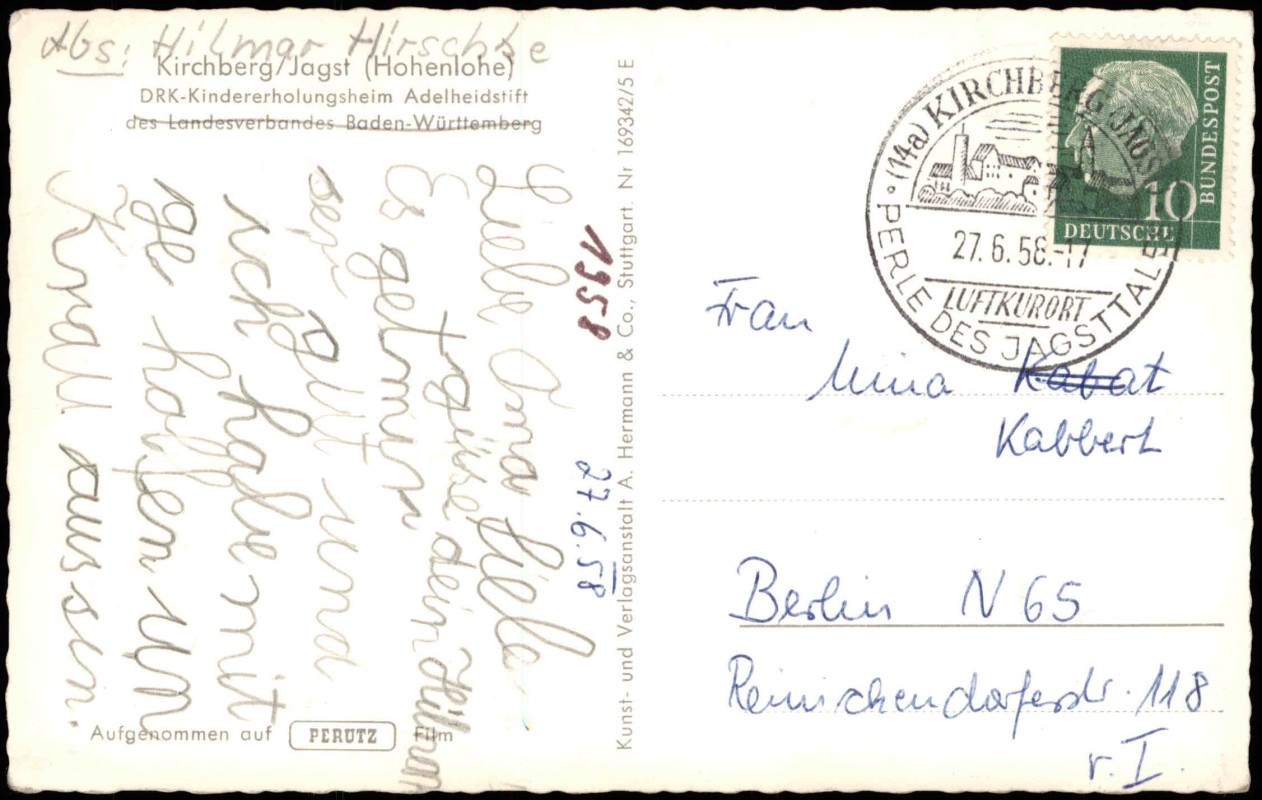 Abs: Hilmar Hirschke
Kirchberg/Jagst (Hohenlohe)
DRK-Kindererholungsheim Adelheidstift
des Landesverbandes Baden-Württemberg
Liebe Oma
Es get mir
ser gut und
ich habe mit
ge holfen un
Kraut aus
grüse dein Hilmar
Aufgenommen auf PERUTZ Film
1958
27.6.58
Kunst- und Verlagsanstalt A. Hermann & Co., Stuttgart. Nr 169342/5 E
(14a) KIRCHBERG/JAGST
27.6.58.-17
LUFTKURORT
PERLE DES JAGSTTALES
10
DEUTSCHE
BUNDESPOST
Frau
Mina Kabat
Kabbert
Berlin N 65
Reinickendorferstr. 118
r. I.